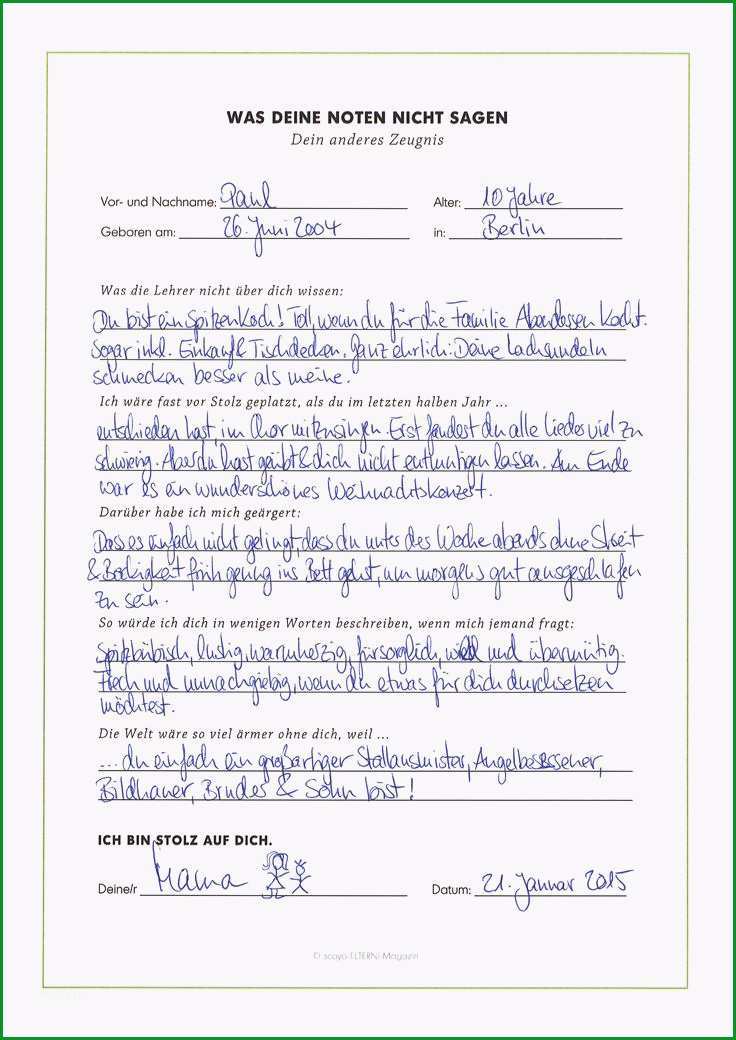 WAS DEINE NOTEN NICHT SAGEN
Dein anderes Zeugnis
Vor- und Nachname: Paul Alter: 10 Jahre
Geboren am: 26. Juni 2004 in: Berlin
Was die Lehrer nicht über dich wissen:
Du bist ein Spitzenkoch! Toll, wenn du für die Familie Abendessen kochst.
Sogar inkl. Einkauf & Tischdecken. Ganz ehrlich: Deine Lachsnudeln
schmecken besser als meine.
Ich wäre fast vor Stolz geplatzt, als du im letzten halben Jahr ...
entschieden hast, im Chor mitzusingen. Erst fandest du alle Lieder viel zu
schwierig. Aber du hast geübt & dich nicht entmutigen lassen. Am Ende
war es ein wunderschönes Weihnachtskonzert.
Darüber habe ich mich geärgert:
Dass es einfach nicht gelingt, dass du unter der Woche abends ohne Streit
& Bockigkeit früh genug ins Bett gehst, um morgens gut ausgeschlafen
zu sein.
So würde ich dich in wenigen Worten beschreiben, wenn mich jemand fragt:
Spitzbübisch, lustig, warmherzig, fürsorglich, wild und übermütig.
Frech und unnachgiebig, wenn du etwas für dich durchsetzen
möchtest.
Die Welt wäre so viel ärmer ohne dich, weil ...
... du einfach ein großartiger Stallausmister, Angelbesessener,
Bildhauer, Bruder & Sohn bist!
ICH BIN STOLZ AUF DICH.
Deine/r Mama Datum: 21. Januar 2015
© scoyo ELTERN! Magazin